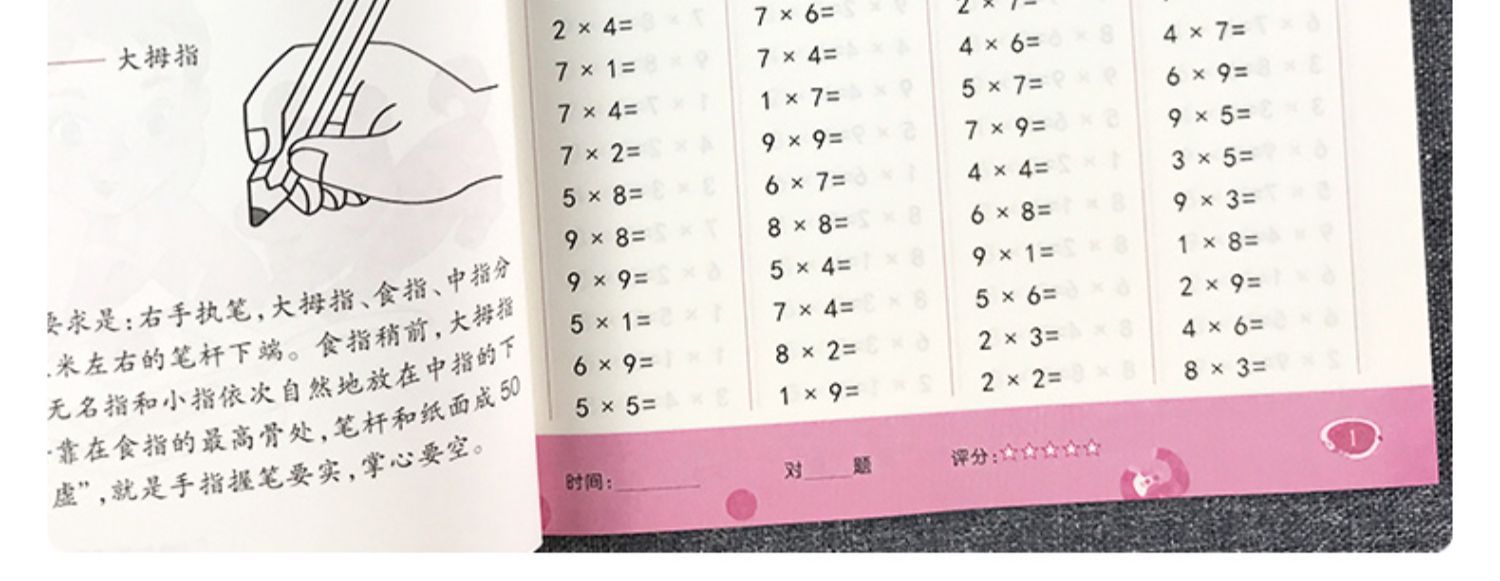 大拇指
要求是:右手执笔,大拇指、食指、中指分
米左右的笔杆下端。食指稍前,大拇指
无名指和小指依次自然地放在中指的下
靠在食指的最高骨处,笔杆和纸面成50
虚”,就是手指握笔要实,掌心要空。
2 × 4=
7 × 1=
7 × 4=
7 × 2=
5 × 8=
9 × 8=
9 × 9=
5 × 1=
6 × 9=
5 × 5=
7 × 6=
7 × 4=
1 × 7=
9 × 9=
6 × 7=
8 × 8=
5 × 4=
7 × 4=
8 × 2=
1 × 9=
2 × 7=
4 × 6=
5 × 7=
7 × 9=
4 × 4=
6 × 8=
9 × 1=
5 × 6=
2 × 3=
2 × 2=
4 × 7=
6 × 9=
9 × 5=
3 × 5=
9 × 3=
1 × 8=
2 × 9=
4 × 6=
8 × 3=
时间:______ 对____题 评分:☆☆☆☆☆
1